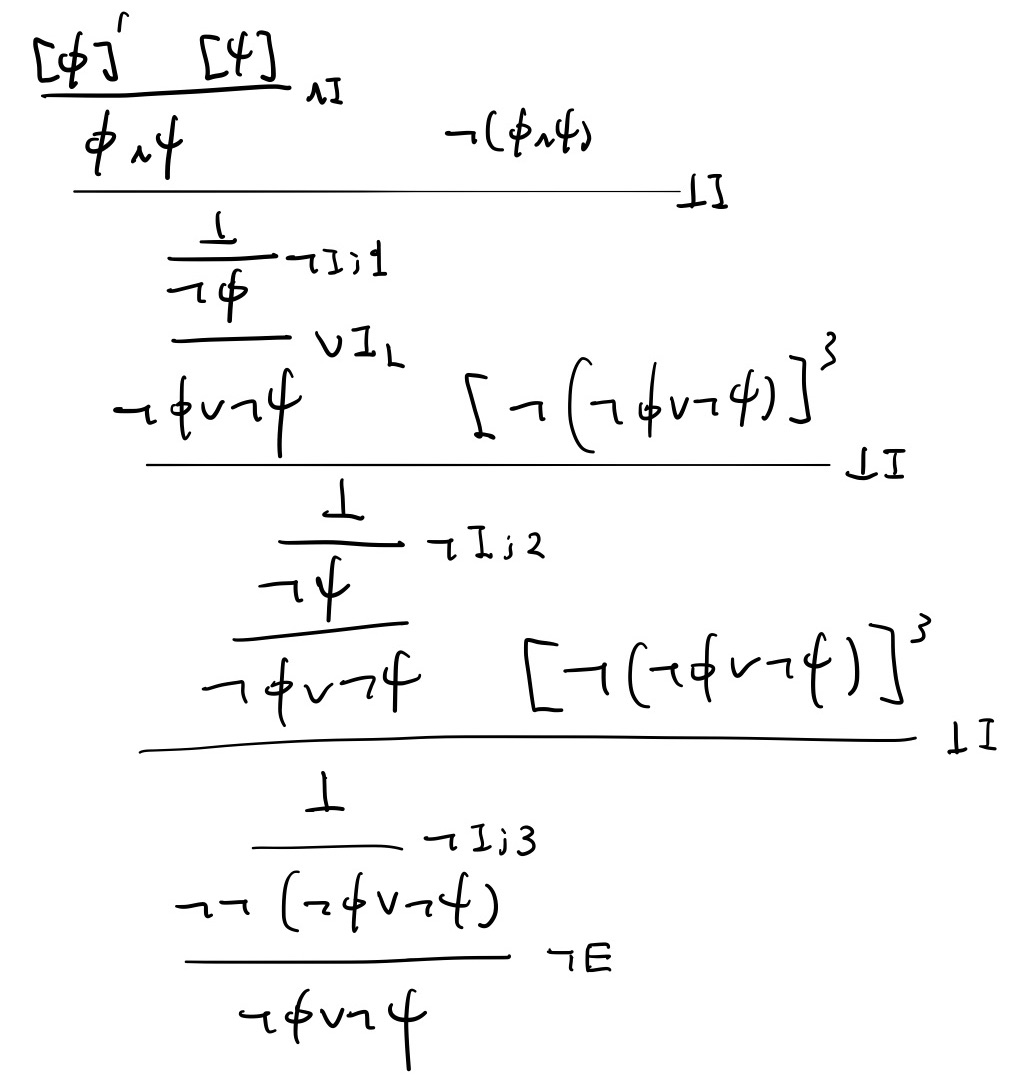 [ϕ]¹ [ψ]
∧I
ϕ∧ψ ¬(ϕ∧ψ)
⊥I
⊥
¬I;1
¬ϕ
∨I_L
¬ϕ∨¬ψ [¬(¬ϕ∨¬ψ)]³
⊥I
⊥
¬I;2
¬ψ
¬ϕ∨¬ψ [¬(¬ϕ∨¬ψ)]³
⊥I
⊥
¬I;3
¬¬(¬ϕ∨¬ψ)
¬E
¬ϕ∨¬ψ